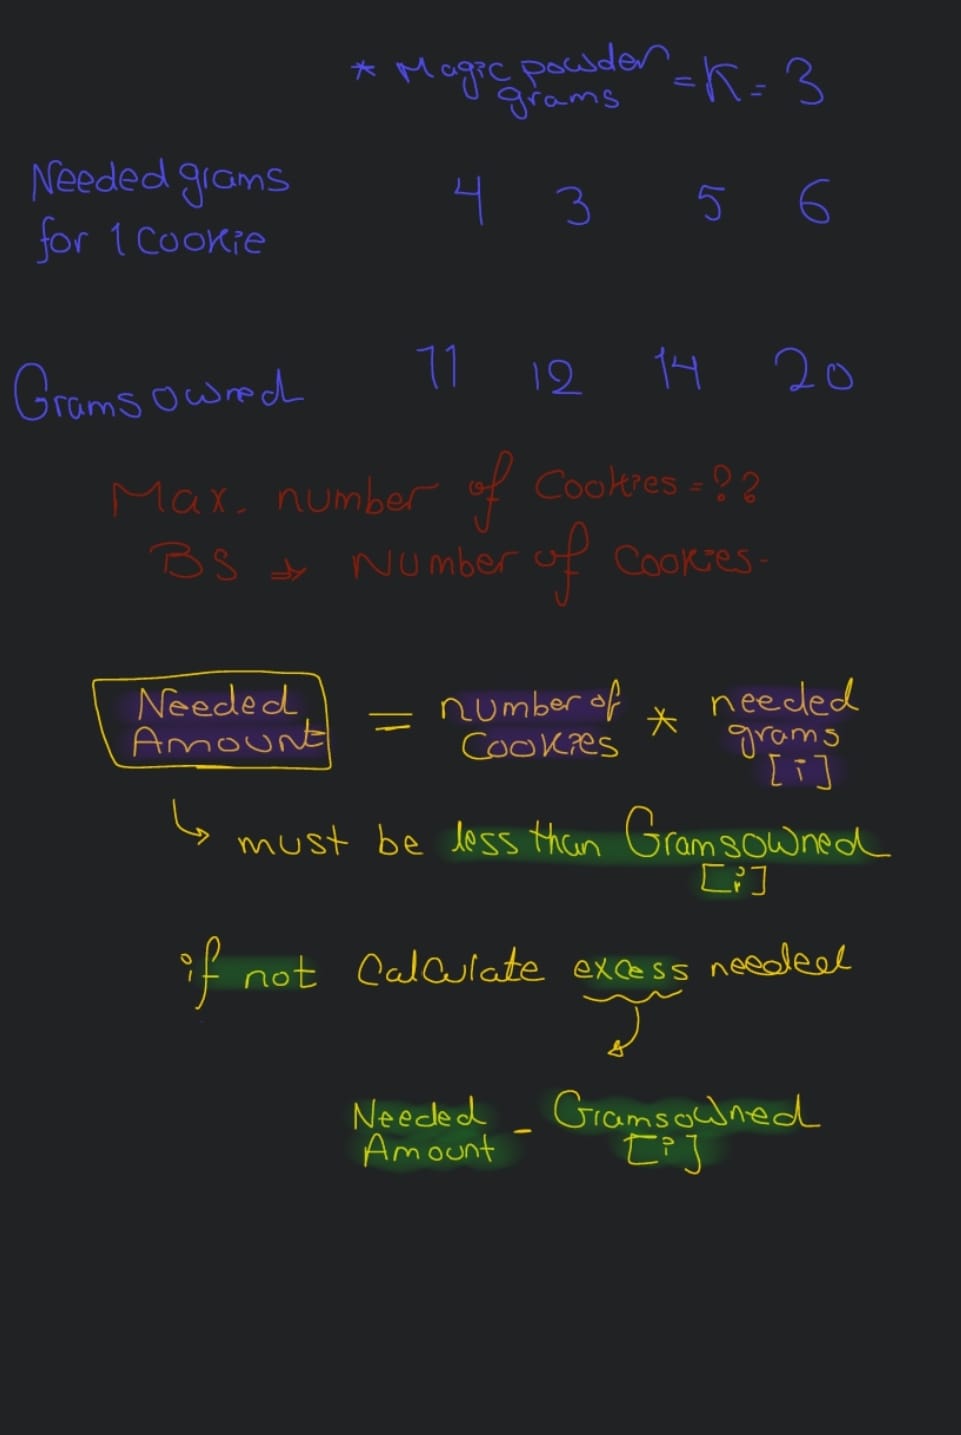 * Magic powder = K = 3
grams
Needed grams
for 1 Cookie
4 3 5 6
Grams owned
11 12 14 20
Max. number of Cookies = ??
BS → Number of Cookies.
Needed
Amount
=
number of
Cookies
*
needed
grams
[i]
↳ must be less than Gramsowned
[i]
if not Calculate excess needed
Needed
Amount
-
Gramsowned
[i]